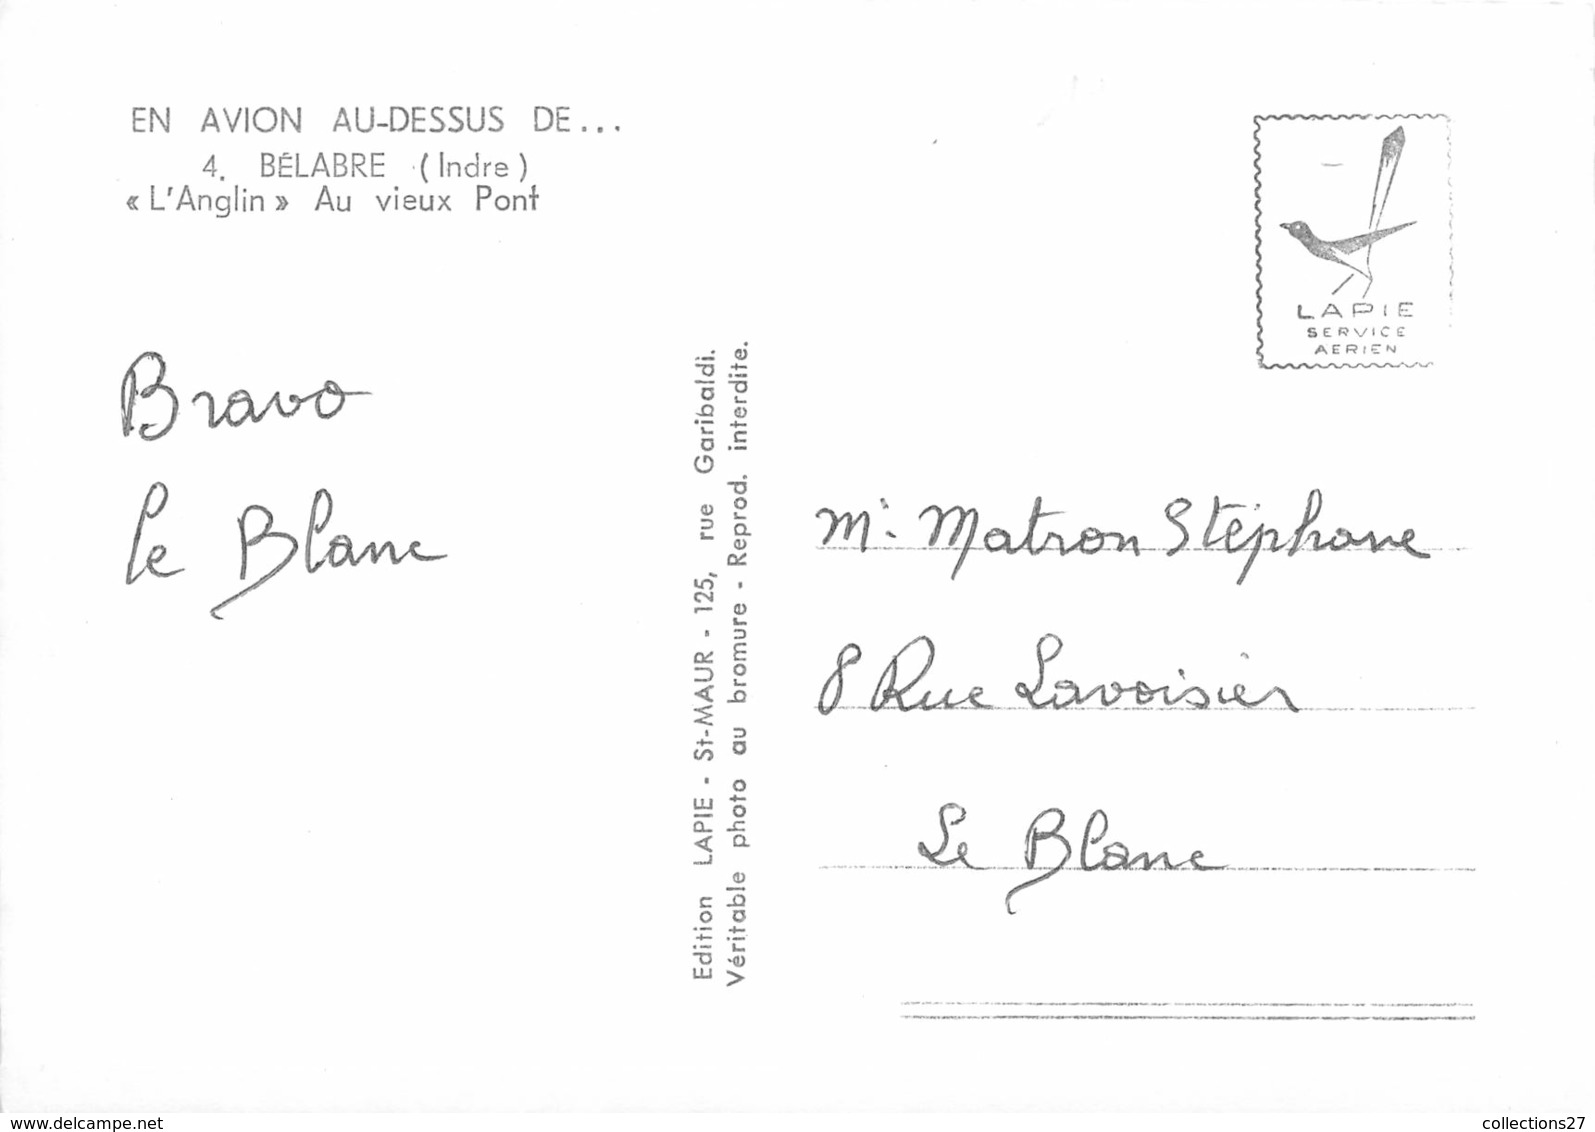 EN AVION AU-DESSUS DE...
4. BÉLABRE (Indre)
« L'Anglin » Au vieux Pont
Bravo
Le Blanc
Edition LAPIE - St-MAUR - 125, rue Garibaldi.
Véritable photo au bromure - Reprod. interdite.
LAPIE
SERVICE
AERIEN
Mr. Matron Stéphane
8 Rue Lavoisier
Le Blanc
www.delcampe.net
collections27